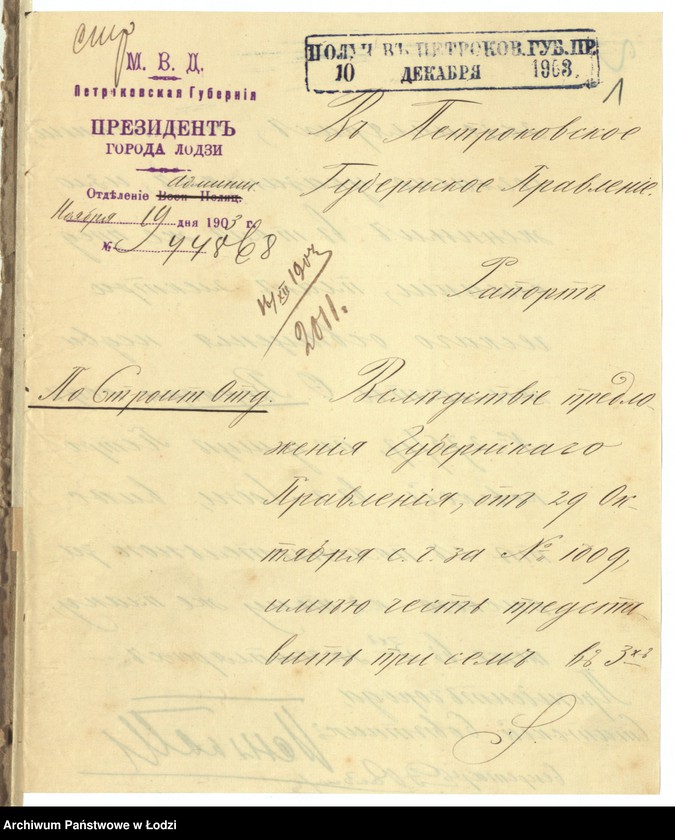 стр
М. В. Д.
Петроковская Губернія
ПРЕЗИДЕНТЪ
ГОРОДА ЛОДЗИ
Отдѣленіе Воен-Полиц. Админис
Ноября 19 дня 1903 го
№ 44868
ПОЛУЧ ВЪ ПЕТРОКОВ. ГУБ. ПР
10 ДЕКАБРЯ 1903.
1
Въ Петроковское
Губернское Правленіе.
Рапортъ
2011.
По Строит Отд.
Вслѣдствіе предло-
женія Губернскаго
Правленія, отъ 29 Ок-
тября с. г. за № 1009,
имѣю честь предста
вить при семъ въ 3хъ
Archiwum Państwowe w Łodzi